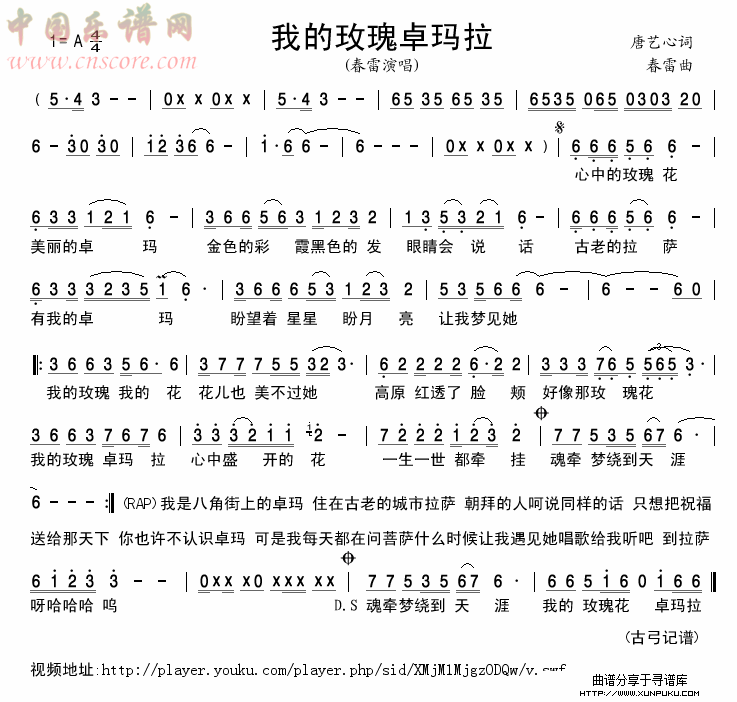 中国乐谱网
www.cnscore.com
1=A 4/4
我的玫瑰卓玛拉
(春雷演唱)
唐艺心词
春雷曲
( 5·4 3 - - | 0x x 0x x | 5·4 3 - - | 65 35 65 35 | 6535 065 0303 20 |
6 - 30 30 | 12 36 6 - | 1·6 6 - | 6 - - - | 0x x 0x x ) | 6 6 6 5 6 6 - |
心中的玫瑰 花
6 3 3 1 2 1 6 - | 3 6 6 5 6 3 1 2 3 2 | 1 3 5 3 2 1 6 - | 6 6 6 5 6 6 - |
美丽的卓 玛 金色的彩 霞黑色的 发 眼睛会 说 话 古老的拉 萨
6 3 3 3 2 3 5 1 6 · | 3 6 6 6 5 3 1 2 3 2 | 5 3 5 6 6 6 - | 6 - - 6 0 |
有我的卓 玛 盼望着 星星 盼月 亮 让我梦见她
3 6 6 3 5 6· 6 | 3 7 7 7 5 5 3 2 3 · | 6 2 2 2 2 6·2 2 | 3 3 3 7 6 5 5 6 5 3 · |
3
我的玫瑰 我的 花 花儿也 美不过她 高原 红透了 脸 颊 好像那玫 瑰花
3 6 6 3 7 6 7 6 | 3 3 3 2 1 1 2 - | 7 2 2 2 1 2 3 2 | 7 7 5 3 5 6 7 6 - |
我的玫瑰 卓玛 拉 心中盛 开的 花 一生一世 都牵 挂 魂牵 梦绕到天 涯
6 - - - :‖ (RAP)我是八角街上的卓玛 住在古老的城市拉萨 朝拜的人呵说同样的话 只想把祝福
送给那天下 你也许不认识卓玛 可是我每天都在问菩萨什么时候让我遇见她唱歌给我听吧 到拉萨
6 1 2 3 3 - - | 0x x x 0 x x x x x | 7 7 5 3 5 6 7 6 · | 6 6 5 1 6 0 1 6 6 ‖
呀哈哈哈 呜 D.S 魂牵梦绕到 天 涯 我的 玫瑰花 卓玛拉
(古弓记谱)
视频地址:http://player.youku.com/player.php/sid/XMjM1MjgzODQw/v.swf
曲谱分享于寻谱库
HTTP://WWW.XUNPUKU.COM